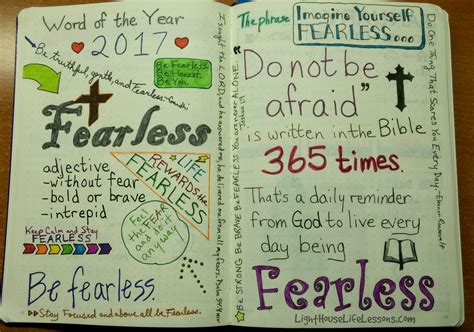 Word of the Year
2017
Be truthful, gentle, and Fearless ~Gandhi
Be Fearless.
Be Honest.
Be You.
Fearless
adjective
-without fear
-bold or brave
-intrepid
LIFE
REWARDS the
FEARLESS
Keep Calm and Stay
FEARLESS
Feel
the FEAR
and do it
any way.
Be fearless.
▸▸Stay Focused and above all be Fearless.
I sought the LORD, and he answered me; he delivered me from all my fears. Psalm 34:4
The phrase
Imagine Yourself
FEARLESS...
"Do not be
afraid"
is written in the Bible
365 times.
That's a daily reminder
from God to live every
day being
Fearless
LightHouseLifeLessons.com
Be STRONG Be BRAVE Be FEARLESS You are never ALONE.
Joshua 1:9
Do One Thing That Scares You Every Day. ~Eleanor Roosevelt